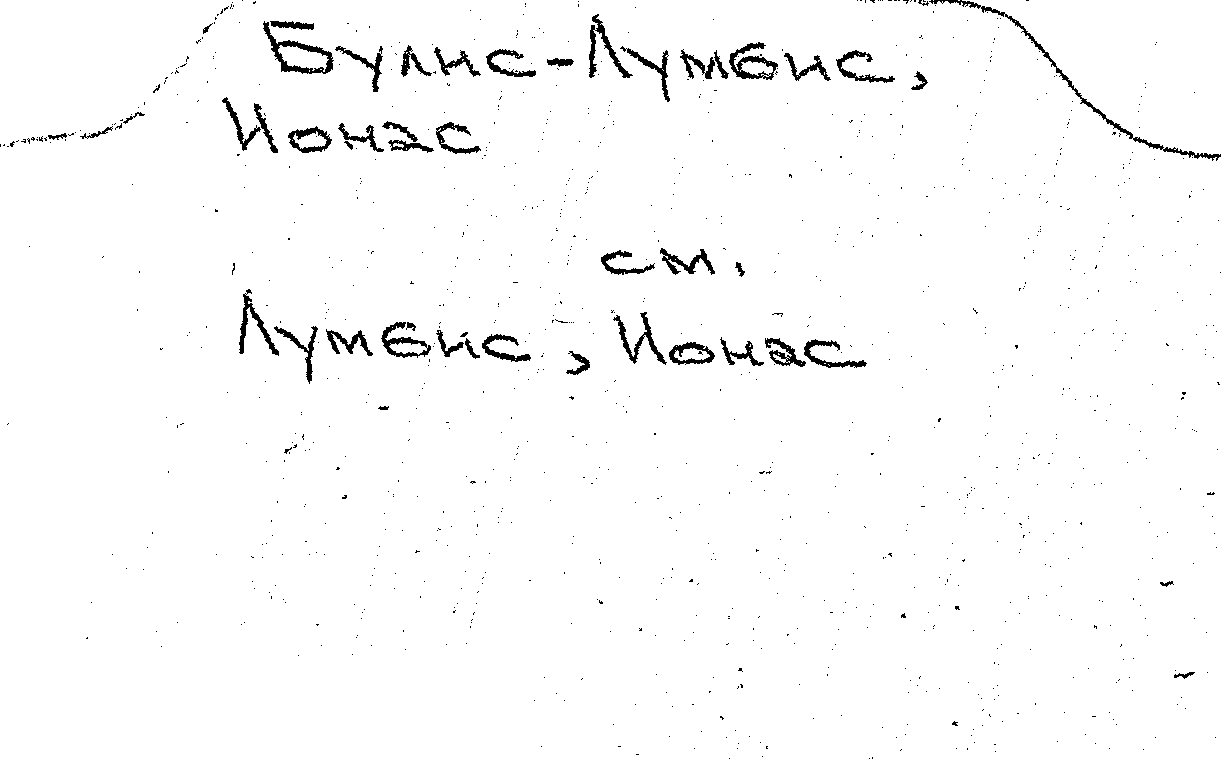 Булис-Лумбис,
Ионас
см.
Лумбис, Ионас